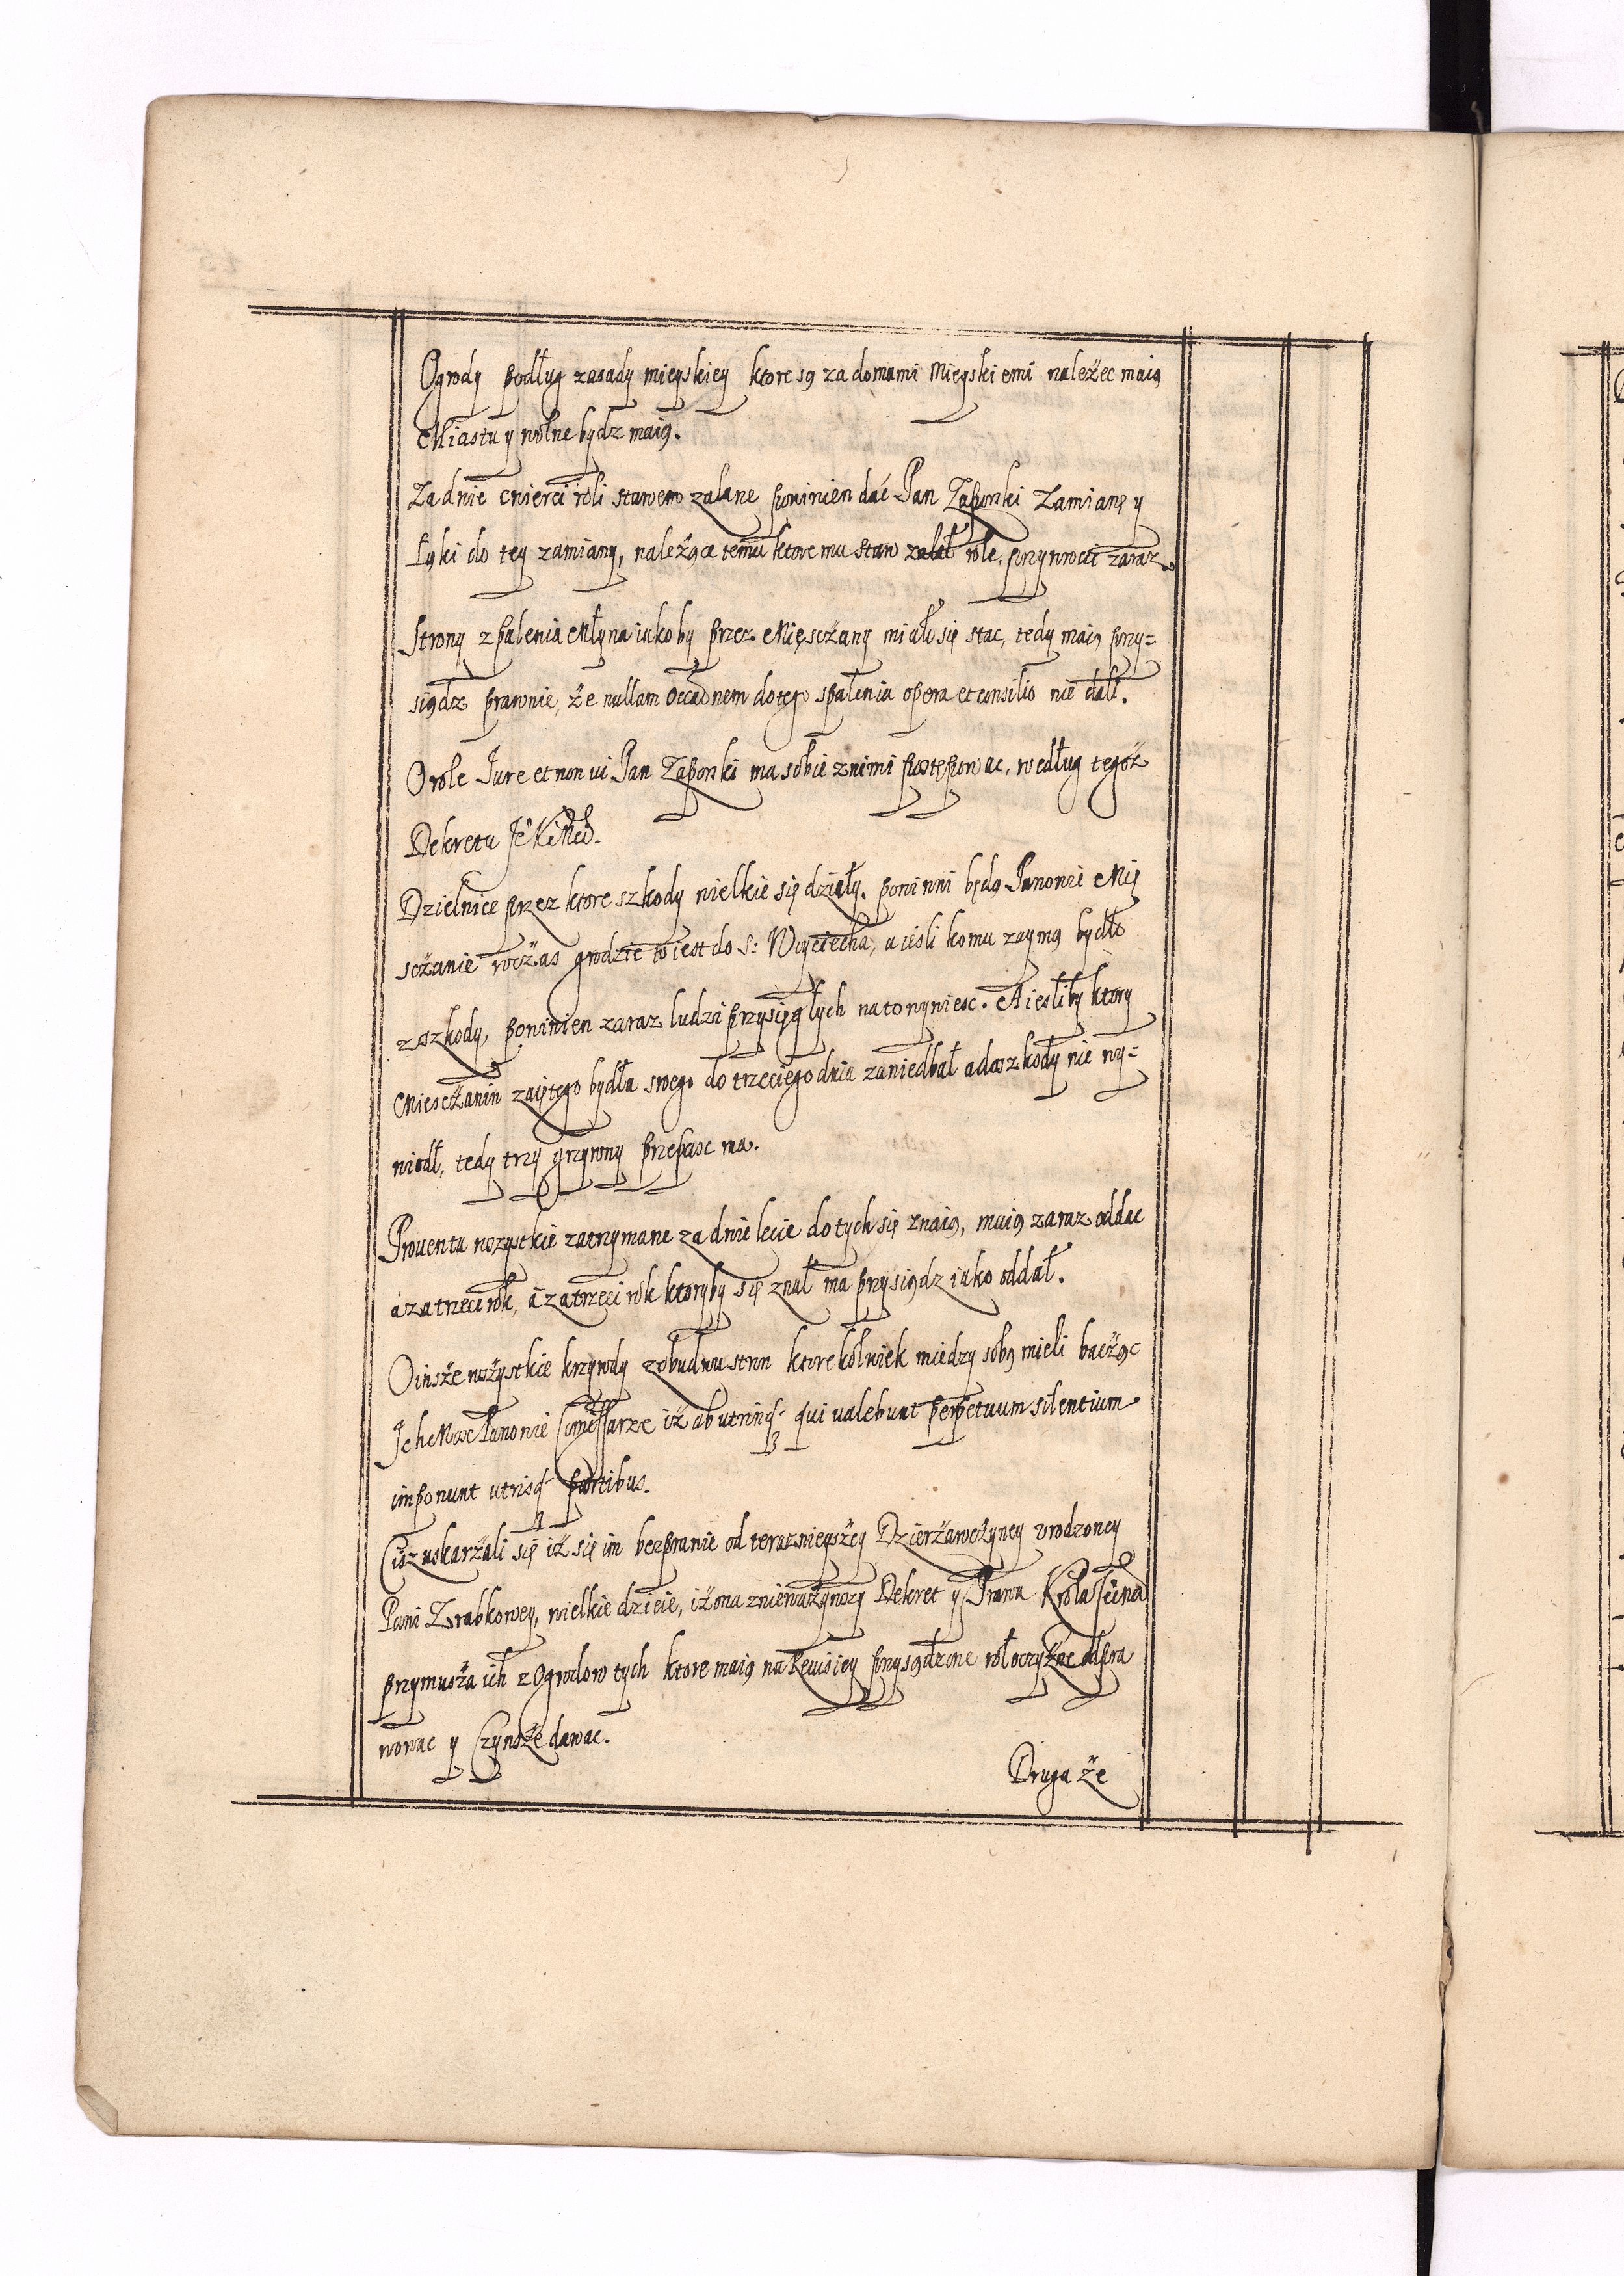 Ogrody podług zasady mieyskiey ktore są za domami Mieyskiemi należec maią
Miastu y wolne bydz maią.
Za dwie cwierci roli stawem zalane powinien dać Pan Zaporski zamianę y
Łąki do tey zamiany, należące temu ktoremu staw zalał role. przywrocic zaraz
Strony zpalenia Młyna iakoby przez Miesczany miału się stac, tedy maią przy=
siądz prawnie, że nullam occaonem do tego spalenia opera et consilio nie dali.
O role Jure et non vi Pan Zaporski ma sobie z nimi postepowac, według tegoż
Dekretu
Dzielnice przez ktore szkody wielkie się działy. powinni będą Panowie Mię
sczanie wczas grodzic to iest do S: Woyciecha, a iesli komu zaymą bydło
z szkody, powinien zaraz ludzi przysięgłych na to wywiesc. A iesliby ktory
Miesczanin zaiętego bydła swego do trzeciego dnia zaniedbał a do szkody nie wy=
wiodł, tedy trzy grzywny przepasc ma.
Prouenta wszystkie zatrzymane za dwie lecie do tych się znaią, maią zaraz oddac
a za trzeci rok, a za trzeci rok ktoryby się znał ma przysiądz iako oddał.
O insze wszystkie krzywdy z obudwu stron ktorekolwiek miedzy sobą mieli bacząc
Ich Mosc Panowie Comissarze iż ab utrinq qui valebunt perpetuum silentium
imponunt utrisq partibus.
Ciż uskarżali się iż się im bezprawie od teraznieyszey Dzierżawczyney vrodzoney
Pani Zrabkowey, wielkie dzieie, iż ona znieważywszy Dekret y Prawa Krola
przymusza ich z Ogrodow tych ktore maią na Rewisiey przysądzone włoczyzne odpra
wowac y Czynsze dawac.
Druga że